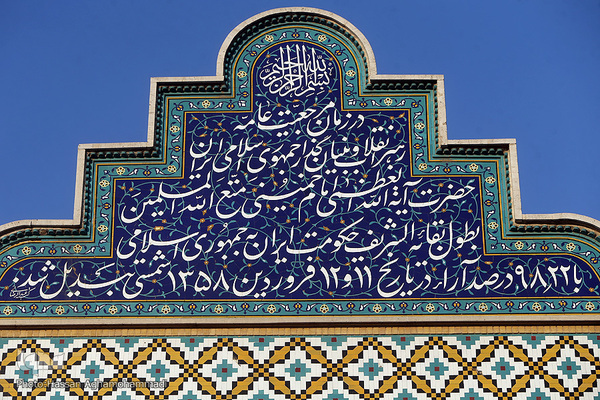 بسم الله الرحمن الرحیم
در زمان مرجعیت عامه
رهبر انقلاب و بنیانگذار جمهوری اسلامی ایران
حضرت آیة الله العظمی امام خمینی متع الله المسلمین
بطول بقائه الشریف حکومت ایران به جمهوری اسلامی
با ۹۸/۲۲ درصد آراء در تاریخ ۱۱ و ۱۲ فروردین ۱۳۵۸ شمسی تبدیل شد
Photo:Hassan Aghamohammadi